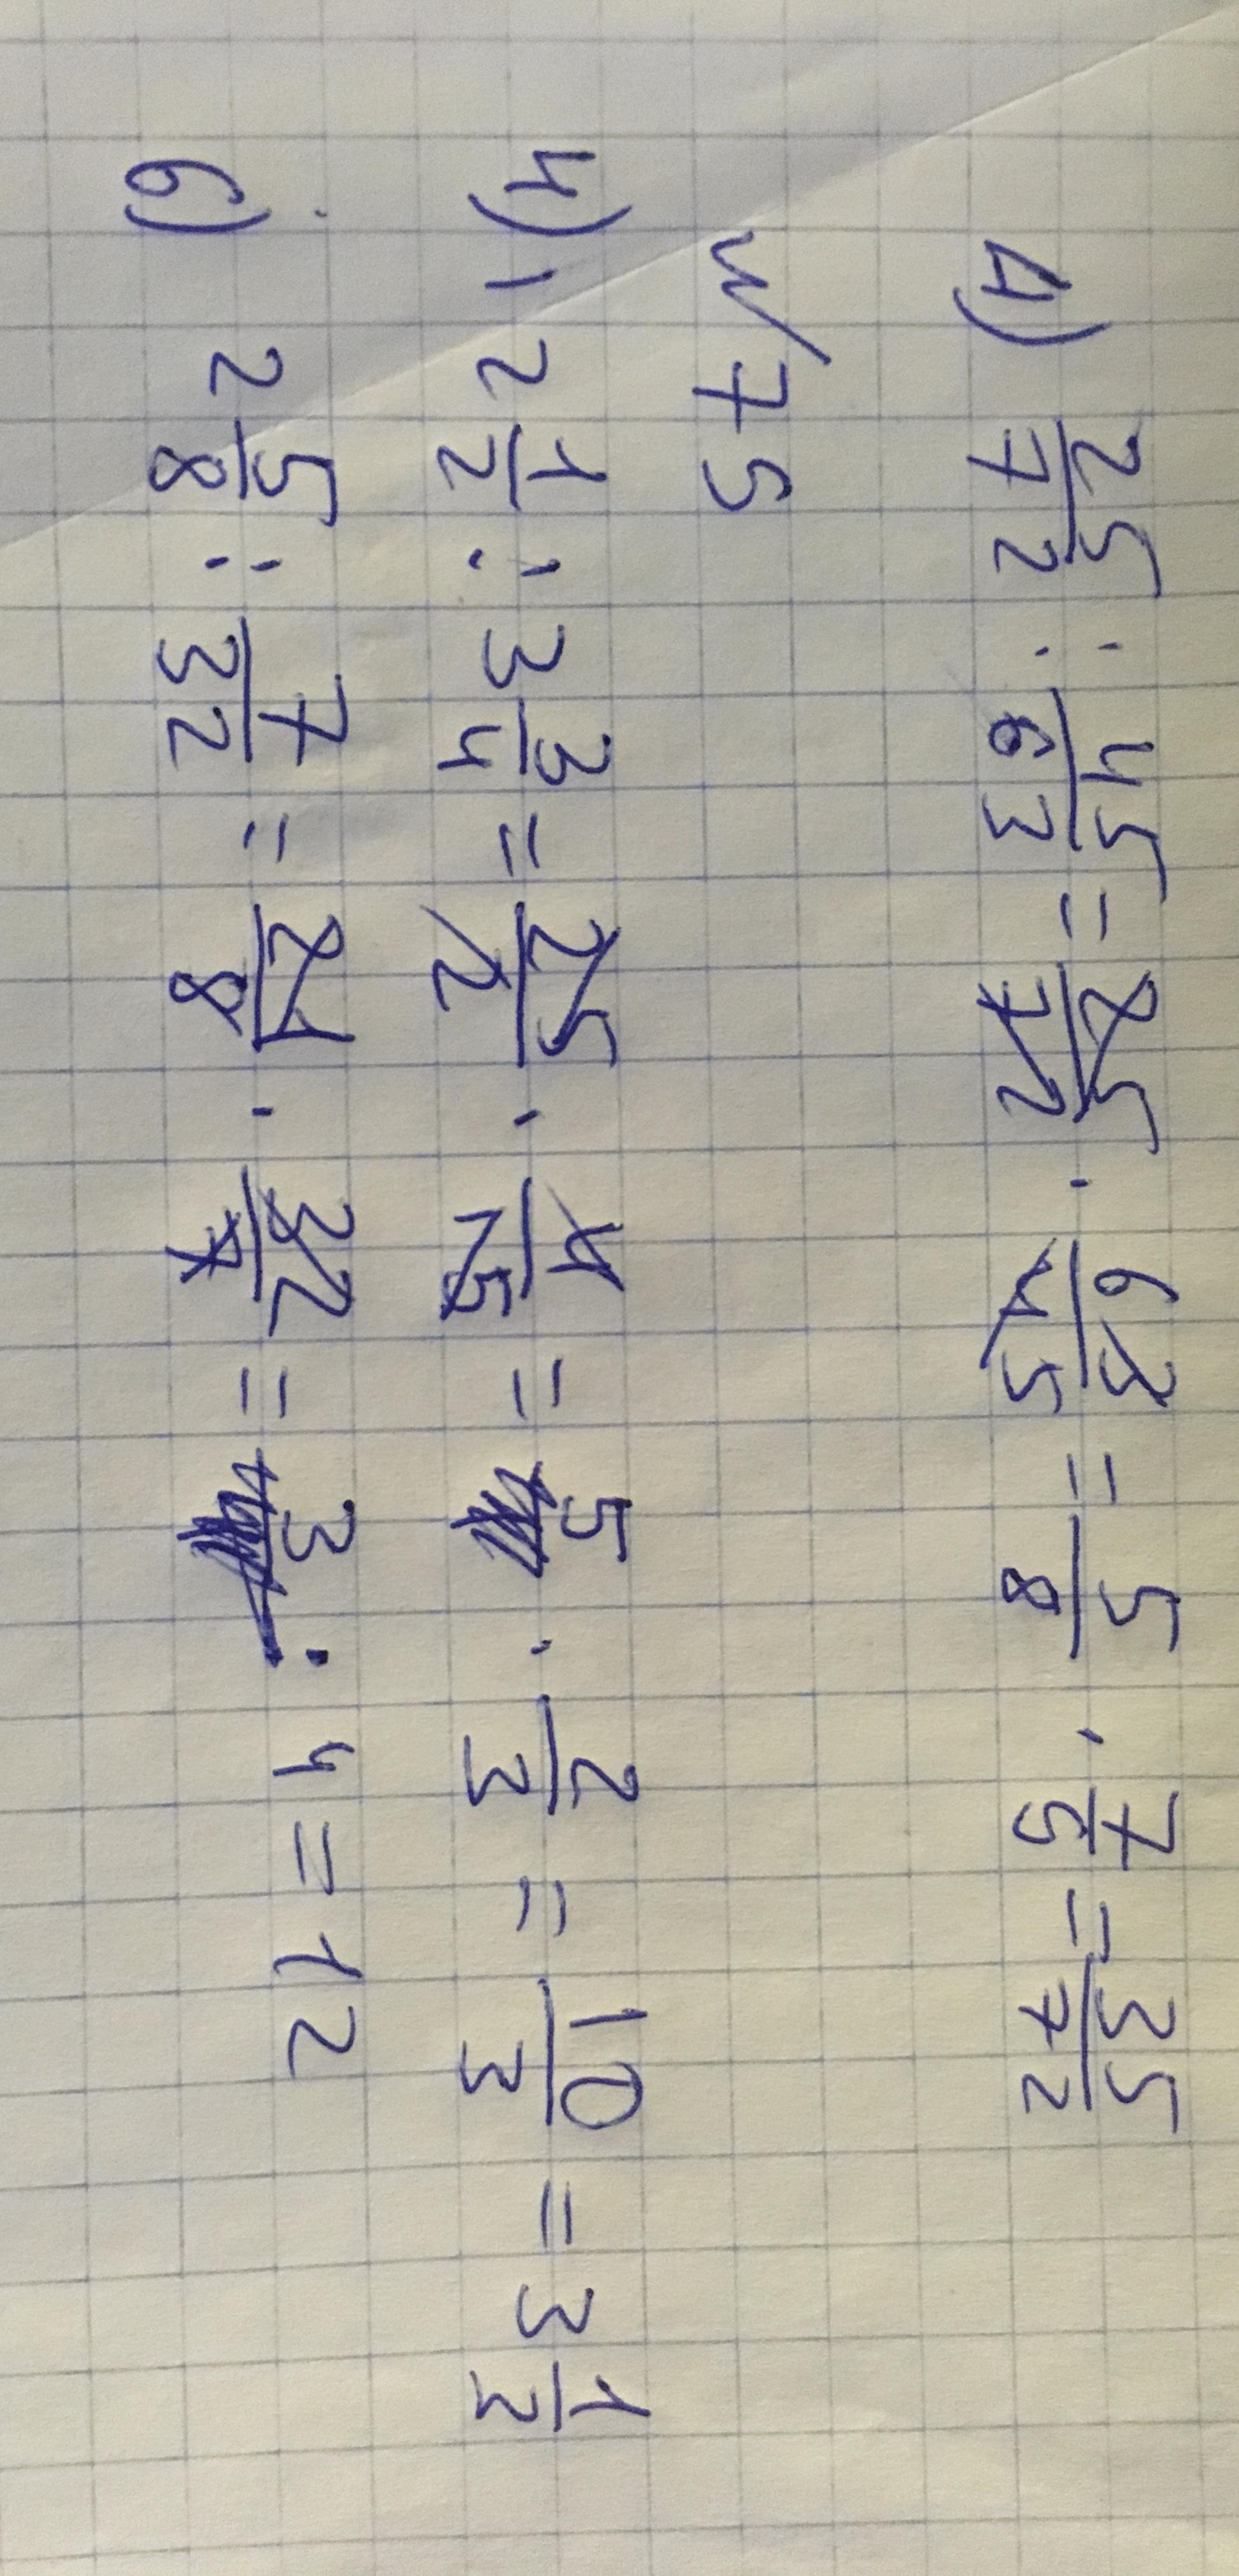 4) 25/72 : 45/63 = 25/72 · 63/45 = 5/8 · 7/5 = 35/72
N75
4) 12 1/2 : 3 3/4 = 25/2 · 4/15 = 5 · 2/3 = 10/3 = 3 1/3
6) 2 5/8 : 7/32 = 21/8 · 32/7 = 3 · 4 = 12